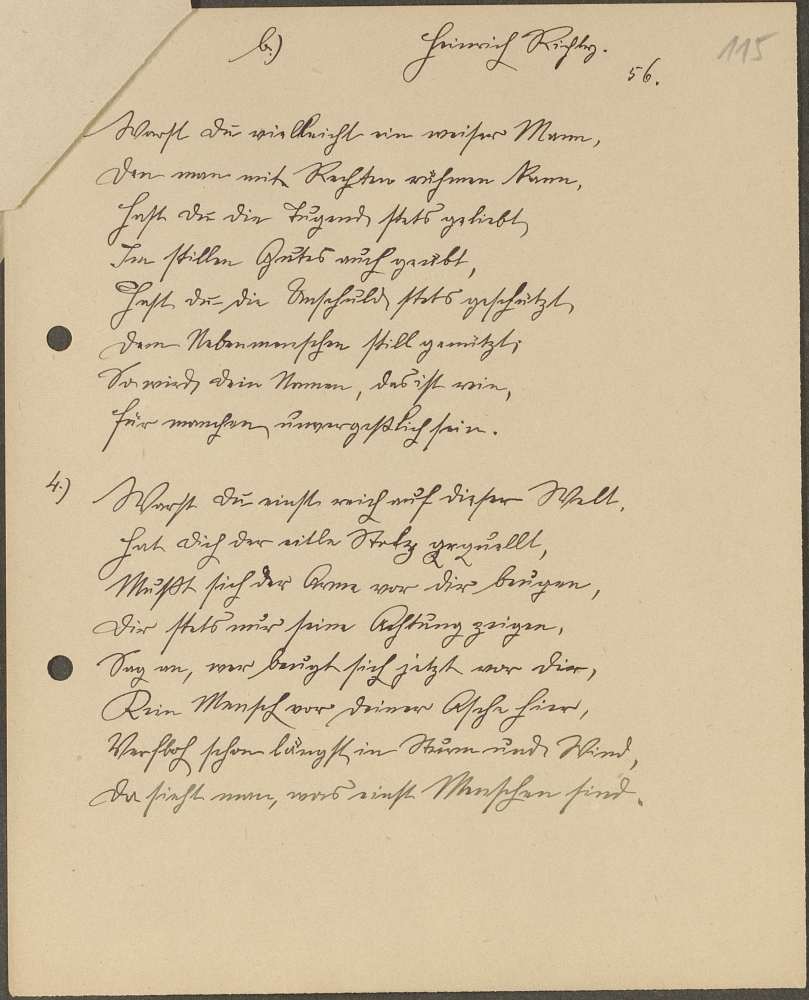 b.) Heinrich Richly.
115
56.
Warst du vielleicht ein weiser Mann,
Den man mit Rechten rühmen kann,
Hast du die Tugend stets geliebt,
Im stillen Gutes auch geübt,
Hast du die Unschuld stets geschützt,
Dem Nebenmenschen still genützt;
So wird dein Namen, das ist rein,
Für manchen unvergeßlich sein.
4.) Warst du einst reich auf dieser Welt,
Hat dich der eitle Stolz gequellt,
Mußt sich der Arme vor dir beugen,
Dir stets nur seine Achtung zeigen,
Sag an, wer beugt sich jetzt vor dir,
Kein Mensch vor deiner Asche hier,
Verfloh schon längst in Sturm und Wind,
Da sieht man, was einst Menschen sind.